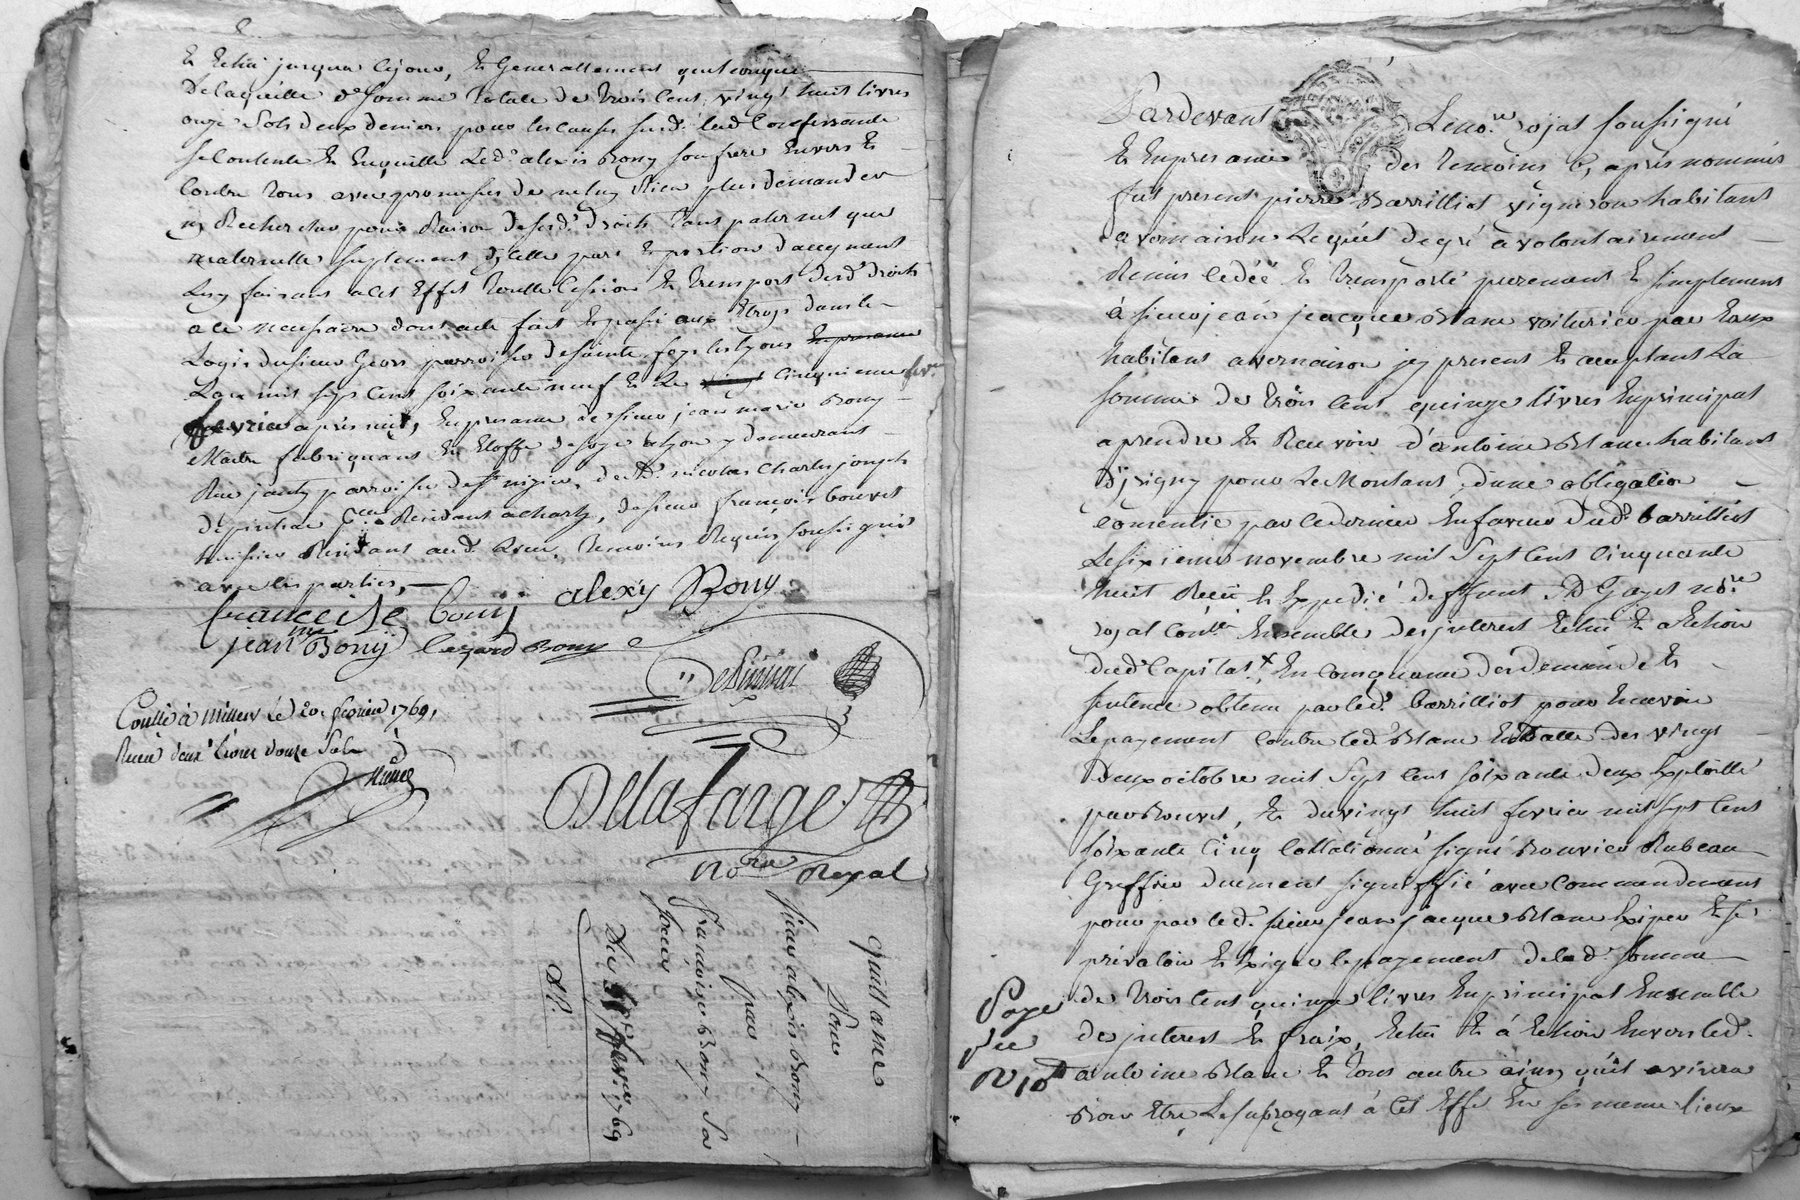 Et Echu jusqua ce jour, Et Generallement quelconque
De laquelle d.e somme totale de trois cent vingt huit livres
onze sols deux deniers pour les causes susd. lad. Confessante
se Contente Et Enquitte Led. alexis Bony son frere Envers Et
Contre tous avec promesses de ne luy Rien plus demander
ny Rechercher pour Raison de sesd. droits tant paternel que
maternelle suplement dycelle part Et portion d'augment
Luy faisant a cet Effet toutte Cession Et transport desd. droits
a ce necessaire dont acte fait Et passé aux Etroys dans le
Logis du sieur Geors parroisse de sainte foy les lyons
L'an mil sept cent soixante neuf Et Le cinquieme
fevrier après midy, En presance de sieur jean marie Bony
Maitre fabriquant En Etoffe de soye a lyon y demeurant
Rue parroisse de St nizier, de Sr. nicolas Charles joseph
Residant a charly, du sieur françois bouvet
huissier Residant aud. lieu, temoins Requis soussignés
avec les parties,
francoise bony alexy Bony
jean mie Bony Bony
Coullé à Millery Le 20. fevrier 1769,
Receu deux livres douze sols
Delafarge
No.re Royal
quittance
Pour
sieur alexis Bony
francoise Bony sa
soeur
Du fevrier 1769
Pardevant Le no.re royal soussigné
Et En presance des temoins cy après nommés
fut present pierre Barrilliot vigneron habitant
a vernaison Lequel de gré a volontairement
Remis cedéé Et transporté purement Et simplement
à sieur jean jacque Blanc voiturier par Eaux
habitant a vernaison icy present Et acceptant La
somme de trois cent quinze livres En principal
a prendre Et Recevoir d'antoine Blanc habitant
D'jrigny pour Le Montant d'une obligation
Consentie par ce dernier En faveur dud. barrilliot
Le sixieme novembre mil sept cent cinquante
huit Receü Et Expedié deffunt Sr Gayet no.re
royal Ensemble des juterest Echu Et a Echoir
dud. Capital x En consequence des demande Et
sentence obtenu par led. barrilliot pour Recevoir
Le payement Contre led. Blanc En datte des vingt
Deux octobre mil sept cent soixante deux Exploitté
par Bouvet, Et du vingt huit fevrier mil sept cent
soixante cinq Collationné signé Bouvier Rubeau
Greffier duement signiffié avec Commandement
pour par led. sieur jean jacque Blanc Exiger Et se
prévaloir Et Exiger le payement de lad. somme
de trois cent quinze livres En principal Ensemble
de juterest Et fraix, Echu Et à Echoir Envers led.
antoine Blanc Et tous autre ainsy quil avisera
Bon Etre, Le subrogant à cet Effet En ses meme lieux